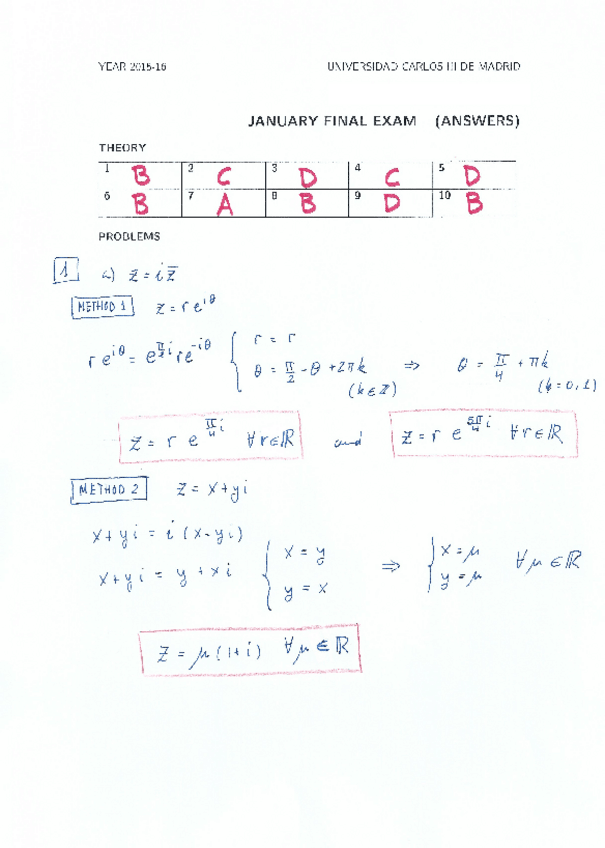 YEAR 2015-16 UNIVERSIDAD CARLOS III DE MADRID
JANUARY FINAL EXAM (ANSWERS)
THEORY
1 B 2 C 3 D 4 C 5 D
6 B 7 A 8 B 9 D 10 B
PROBLEMS
1 a) z = i z̅
METHOD 1 z = r e^{iθ}
r e^{iθ} = e^{π/2 i} r e^{-iθ} { r = r
θ = π/2 - θ + 2πk ⇒ θ = π/4 + πk
(k ∈ ℤ) (k = 0, 1)
z = r e^{π/4 i} ∀ r ∈ ℝ and z = r e^{5π/4 i} ∀ r ∈ ℝ
METHOD 2 z = x + yi
x + yi = i (x - yi)
x + yi = y + xi { x = y
y = x ⇒ { x = μ
y = μ ∀ μ ∈ ℝ
z = μ (1 + i) ∀ μ ∈ ℝ